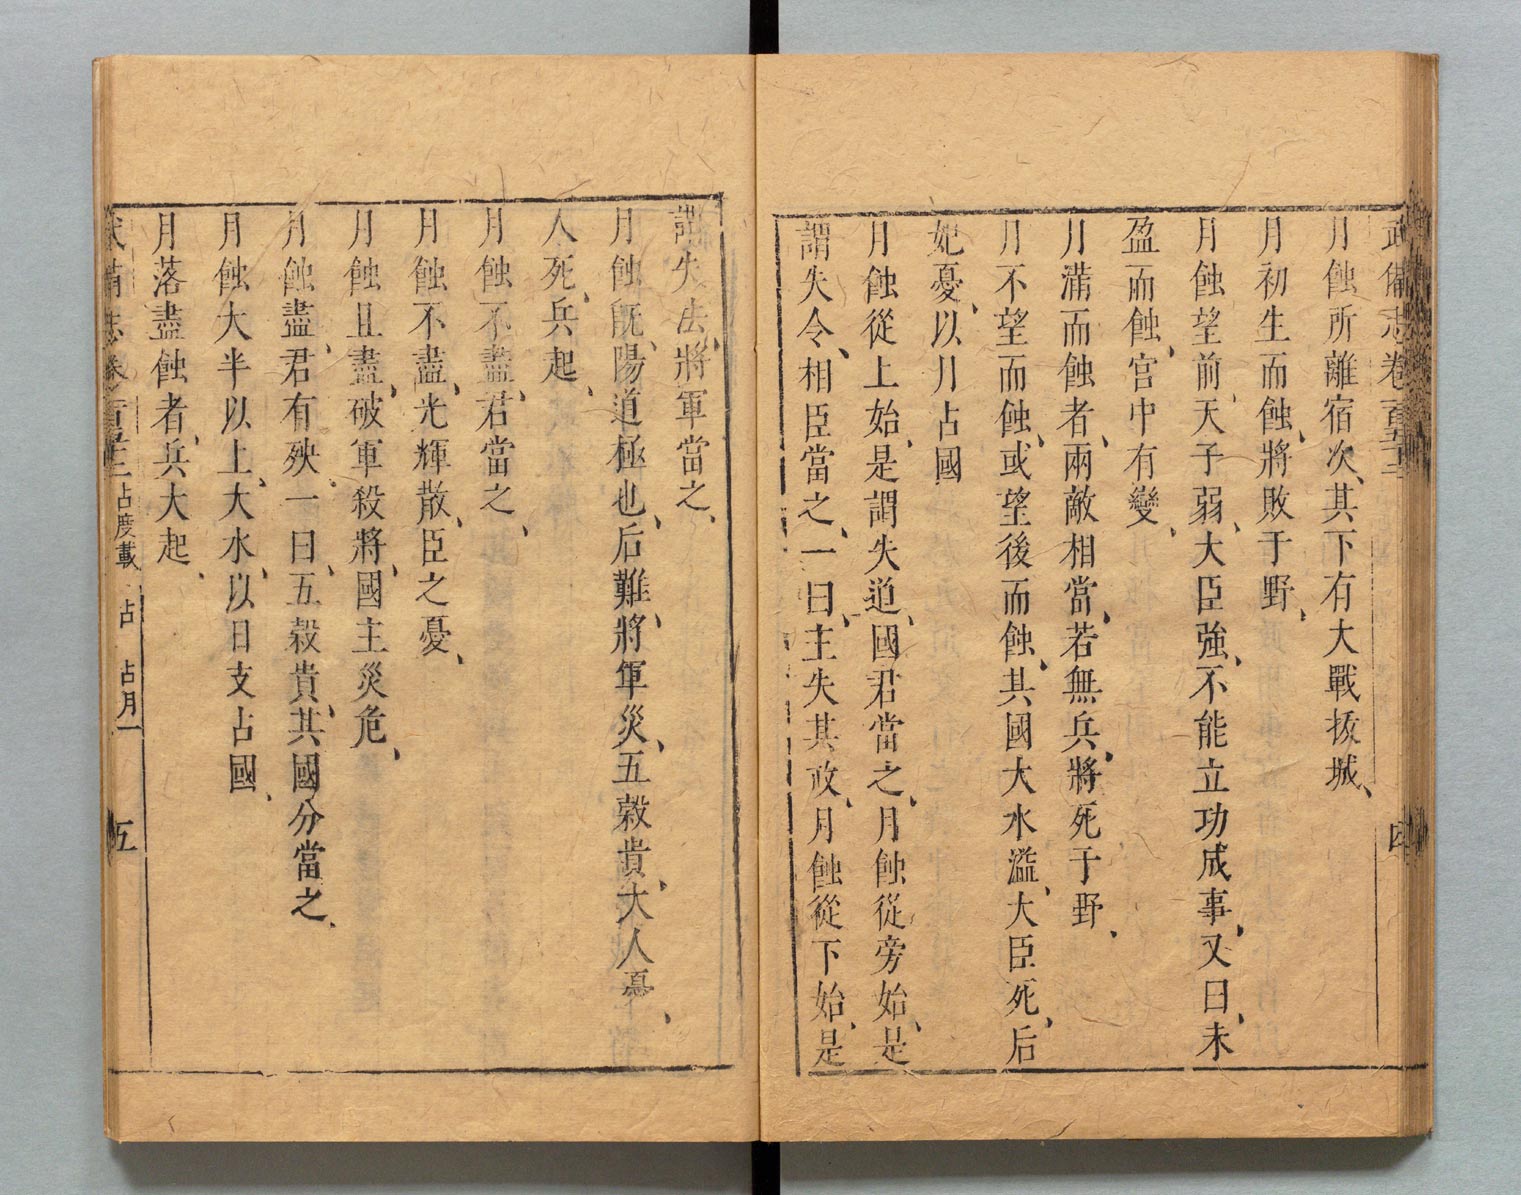 武備志卷
四
月蝕所離宿次、其下有大戰拔城、
月初生而蝕、將敗于野、
月蝕望前、天子弱、大臣強、不能立功成事、又曰、未
盈而蝕、宮中有變、
月滿而蝕者、兩敵相當、若無兵、將死于野、
月不望而蝕、或望後而蝕、其國大水溢、大臣死、后
妃憂、以月占國
月蝕從上始、是謂失道、國君當之、月蝕從旁始、是
謂失令、相臣當之、一曰、主失其政、月蝕從下始、是
謂失法、將軍當之、
月蝕既、陽道極也、后難、將軍災、五穀貴、大人憂、
人死、兵起、
月蝕不盡、君當之、
月蝕不盡、光輝散、臣之憂、
月蝕且盡、破軍殺將、國主災危、
月蝕盡、君有殃、一曰、五穀貴、其國分當之、
月蝕大半以上、大水、以日支占國、
月落盡蝕者、兵大起、
武備志卷 占度載 占 占月一
五